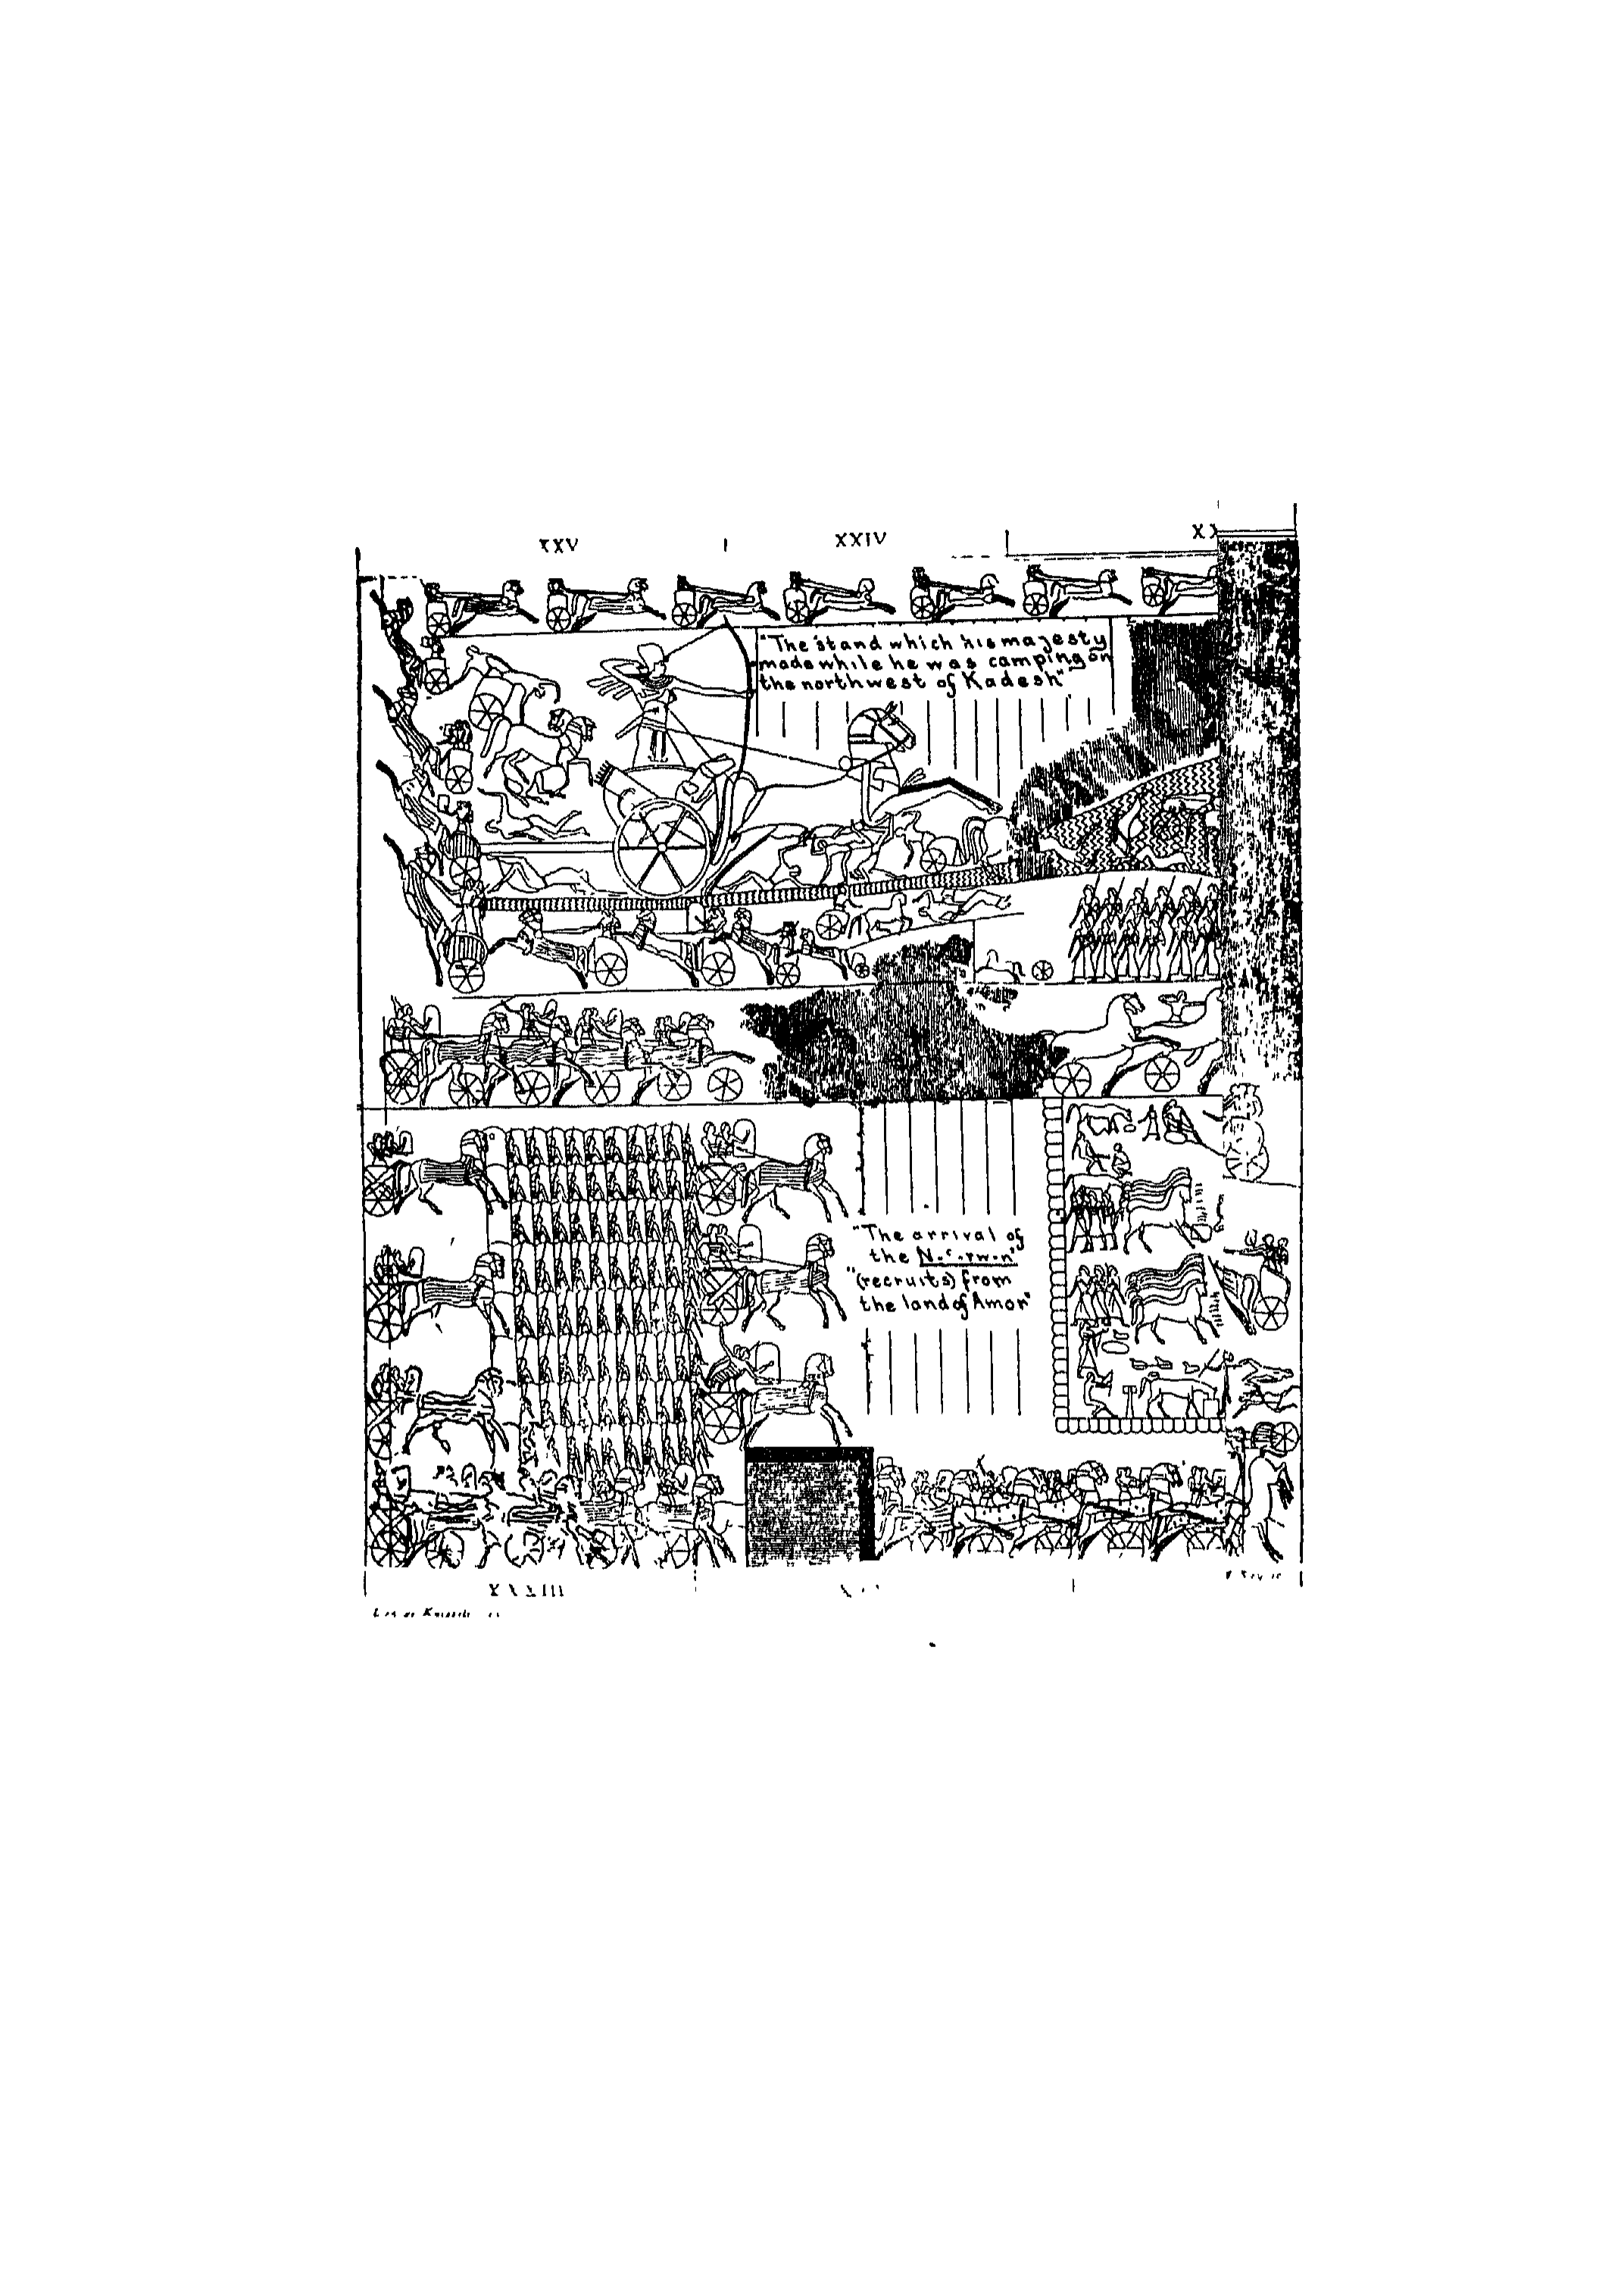 XXV
XXIV
"The stand which his majesty
made while he was camping on
the northwest of Kadesh"
"The arrival of
the
"(recruits) from
the land of Amor"